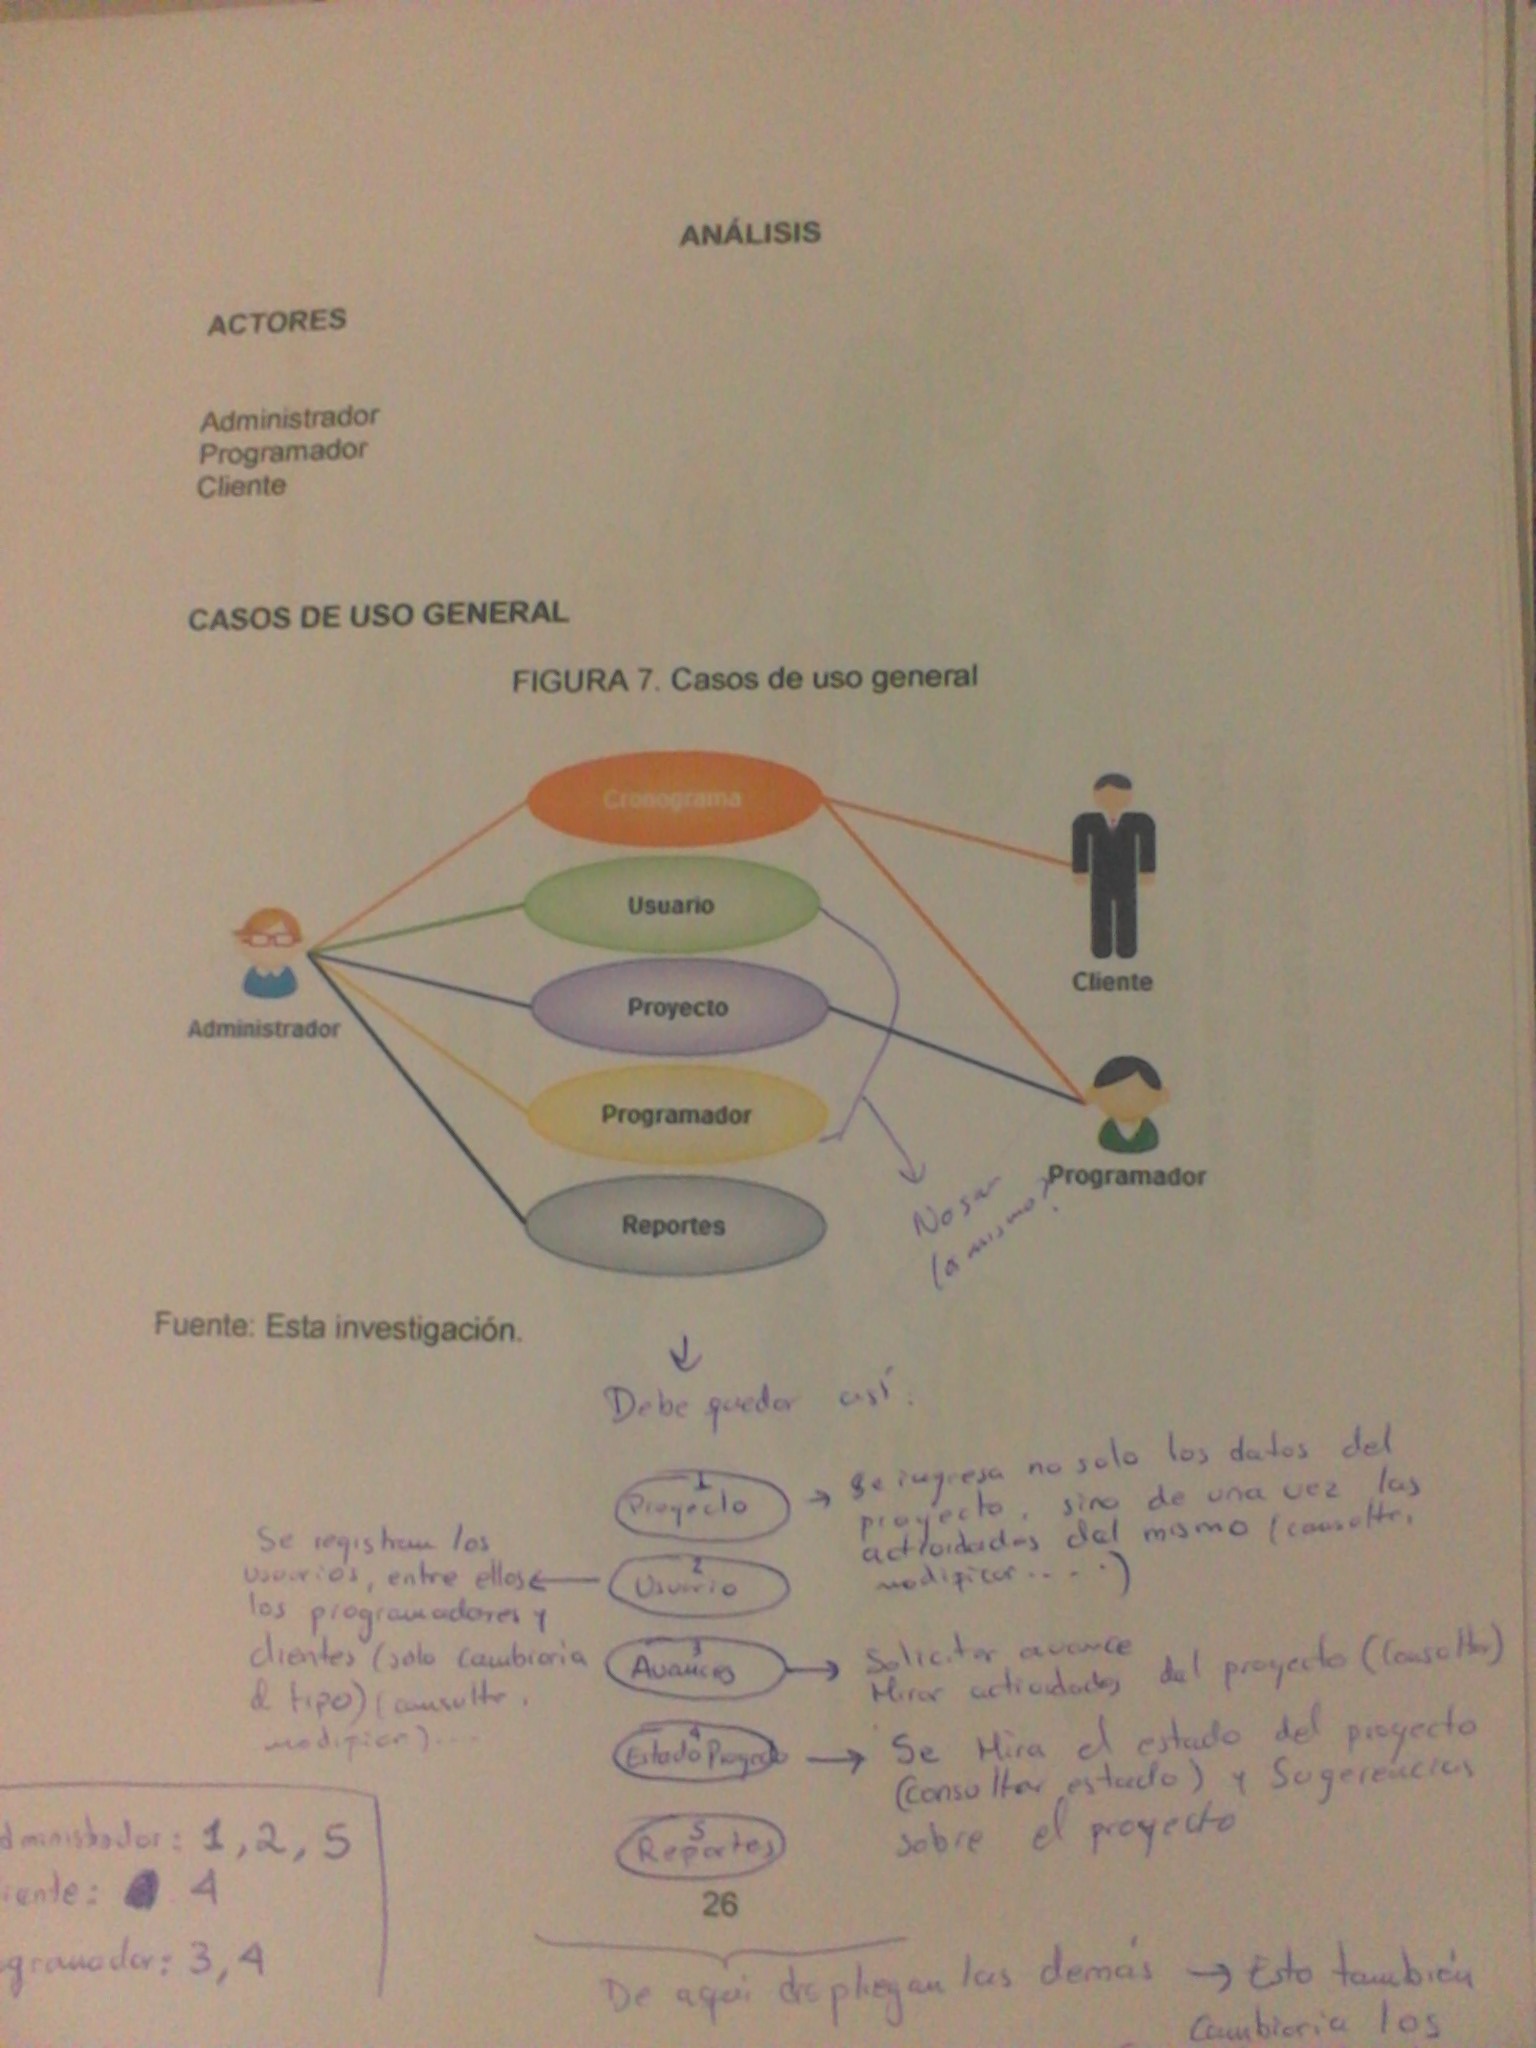 ANÁLISIS
ACTORES
Administrador
Programador
Cliente
CASOS DE USO GENERAL
FIGURA 7. Casos de uso general
Cronograma
Usuario
Proyecto
Programador
Reportes
Administrador
Cliente
Programador
No son
lo mismo?
Fuente: Esta investigación.
Debe quedar así:
1
Proyecto
Se ingresa no solo los datos del
proyecto, sino de una vez las
actividades del mismo (consultar,
modificar.....)
2
Usuario
Se registran los
usuarios, entre ellos
los programadores y
clientes (solo cambiaria
el tipo) (consultar,
modificar)....
3
Avances
Solicitar avance
Mirar actividades del proyecto (Consultar)
4
Estado Proyecto
Se Mira el estado del proyecto
(consultar estado) y Sugerencias
sobre el proyecto
5
Reportes
dministrador: 1, 2, 5
iente: 4
ogramador: 3, 4
26
De aqui despliegan las demás → Esto también
Cambiaria los